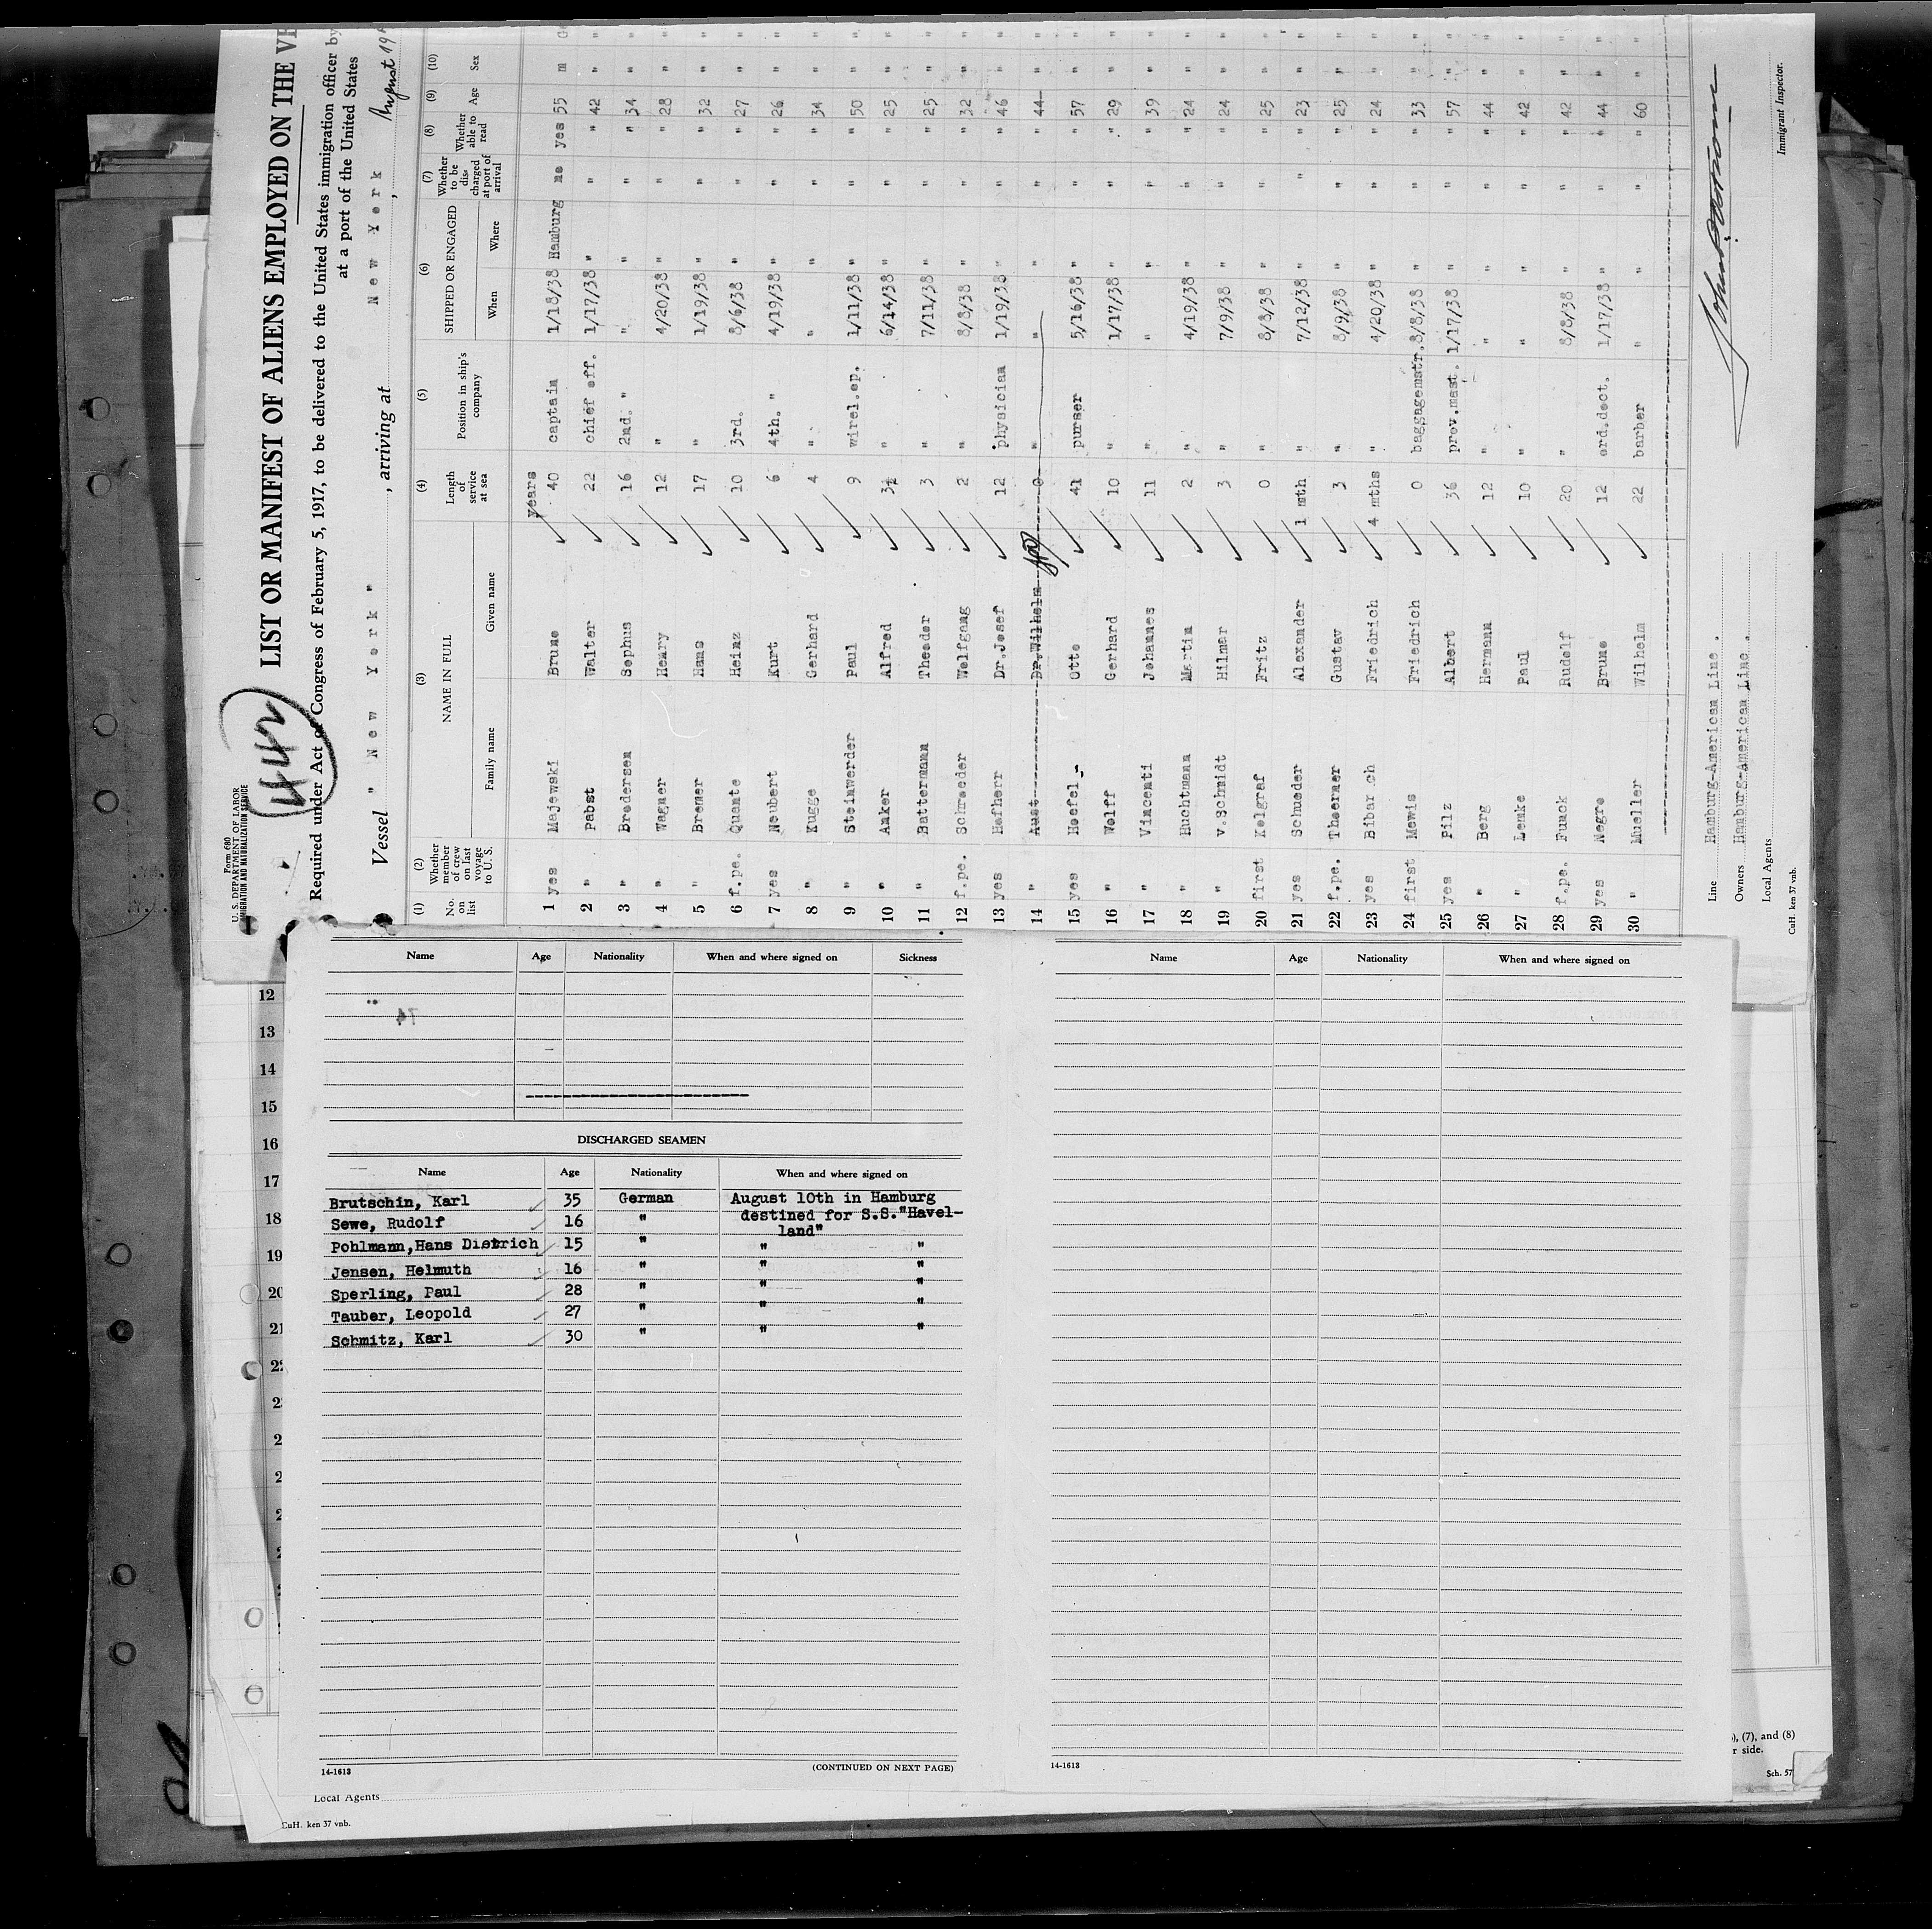 Form 680
U. S. DEPARTMENT OF LABOR
IMMIGRATION AND NATURALIZATION SERVICE
442
LIST OR MANIFEST OF ALIENS EMPLOYED ON THE
Required under Act of Congress of February 5, 1917, to be delivered to the United States immigration officer by
at a port of the United States
Vessel " New York " , arriving at New York , August
(1) (2) (3) (4) (5) (6) (7) (8) (9) (10)
No. on list Whether member of crew on last voyage to U. S. NAME IN FULL Family name Given name Length of service at sea Position in ship's company SHIPPED OR ENGAGED When Where Whether to be dis charged at port of arrival Whether able to read Age Sex
years
1 yes Majewski Bruno 40 captain 1/18/38 Hamburg no yes 55 m
2 " Pabst Walter 22 chief off. 1/17/38 " " " 42 "
3 " Brodersen Sophus 16 2nd. " " " " " 34 "
4 " Wagner Henry 12 " 4/20/38 " " " 28 "
5 " Bremer Hans 17 " 1/19/38 " " " 32 "
6 f.pe. Quante Heinz 10 3rd. 8/6/38 " " " 27 "
7 yes Neubert Kurt 6 4th. " 4/19/38 " " " 26 "
8 " Kugge Gerhard 4 " " " " " 34 "
9 " Steinwerder Paul 9 wirel.op. 1/11/38 " " " 50 "
10 " Anker Alfred " 6/14/38 " " " 25 "
11 " Battermann Theodor 3 " 7/11/38 " " " 25 "
12 f.pe. Schroeder Wolfgang 2 " 8/8/38 " " " 32 "
13 yes Hofherr Dr.Josef 12 physician 1/19/38 " " " 46 "
14 " Aust Dr.Wilhelm 0 " " " " " 44 "
15 yes Hoefel Otto 41 purser 5/16/38 " " " 57 "
16 " Wolff Gerhard 10 " 1/17/38 " " " 29 "
17 " Vincenti Johannes 11 " " " " " 39 "
18 " Huchtmann Martin 2 " 4/19/38 " " " 24 "
19 " v.Schmidt Hilmar 3 " 7/9/38 " " " 24 "
20 first Kolgraf Fritz 0 " 8/8/38 " " " 25 "
21 yes Schueder Alexander 1 mth " 7/12/38 " " " 23 "
22 f.pe. Thoermer Gustav 3 " 8/9/38 " " " 25 "
23 yes Friedrich 4 mths " 4/20/38 " " " 24 "
24 first Mewis Friedrich 0 baggagemstr. 8/8/38 " " " 33 "
25 yes Pilz Albert 36 prov.mast. 1/17/38 " " " 57 "
26 " Berg Hermann 12 " " " " " 44 "
27 " Lemke Paul 10 " " " " " 42 "
28 f.pe. Funck Rudolf 20 " 8/8/38 " " " 42 "
29 yes Negro Bruno 12 ord.doct. 1/17/38 " " " 44 "
30 " Mueller Wilhelm 22 barber " " " " 60 "
Line Hamburg-American Line.
Owners Hamburg-American Line.
Local Agents
Immigrant Inspector.
CuH. ken 37 vnb.
Name Age Nationality When and where signed on Sickness
DISCHARGED SEAMEN
Name Age Nationality When and where signed on
Brutschin, Karl 35 German August 10th in Hamburg
Sewe, Rudolf 16 " destined for S.S."Havel-
land"
Pohlmann,Hans Dietrich 15 " " "
Jensen, Helmuth 16 " " "
Sperling, Paul 28 " " "
Tauber, Leopold 27 " " "
Schmitz, Karl 30 " " "
14-1613
(CONTINUED ON NEXT PAGE)
Name Age Nationality When and where signed on
14-1613
12
13
14
15
16
17
18
19
20
21
22
Local Agents
CuH. ken 37 vnb.
(7), and (8)
side.
Sch. 57